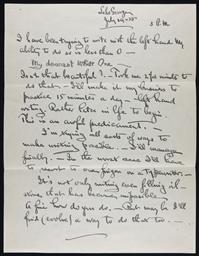 July 29 -
3 P.M.
I have been trying to write with the left hand. My
ability to do so is less than 0 —
My dearest White One —
Isn't that beautiful? Took me 2½ minutes to
do that — I'll make it my business to
practice 15 minutes a day — left hand
writing. Rather late in life to begin.
This is an awful predicament. —
I'm trying all sorts of ways to
make writing possible. — I'll manage
finally. — In the worst case I'll have
to resort to one finger on a Typewriter. —
It's not only writing even filling ink
since that has become impossible
A fine how do you do. — But maybe I'll
find (evolve) a way to do that too. —